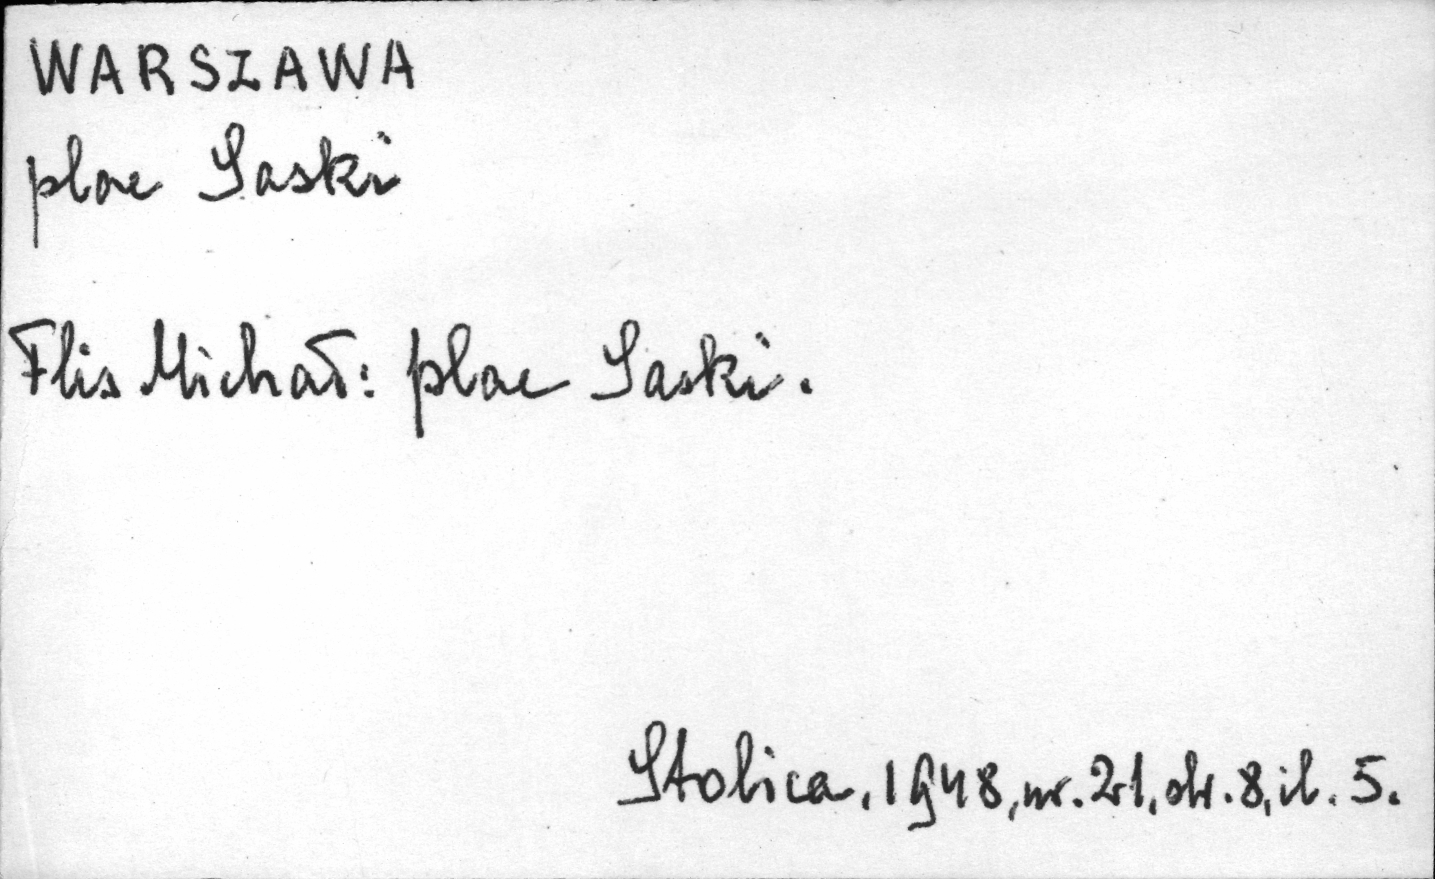 WARSZAWA
plac Saski
Flis Michał: plac Saski.
Stolica, 1948, nr. 21, str. 8, il. 5.